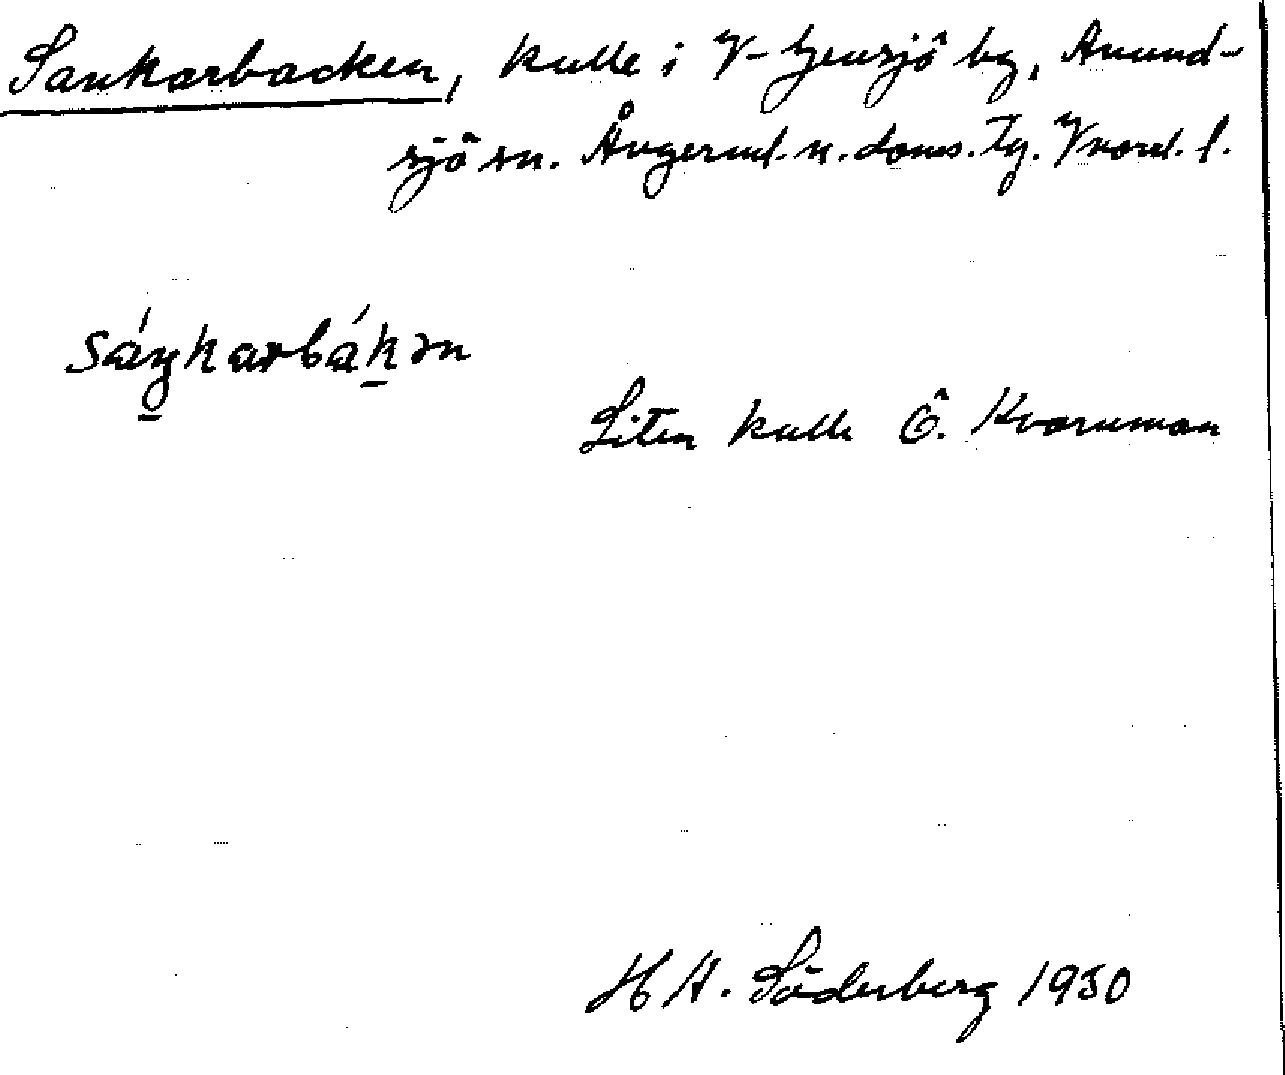 Sankarbacken, kulle i V-Gensjö by, Anund-
sjö sn. Ångerml. n. doms. Tg. Vnorrl. l.
sáŋkarbákən
Liten kulle Ö. Kvarnman
H A. Söderberg 1930